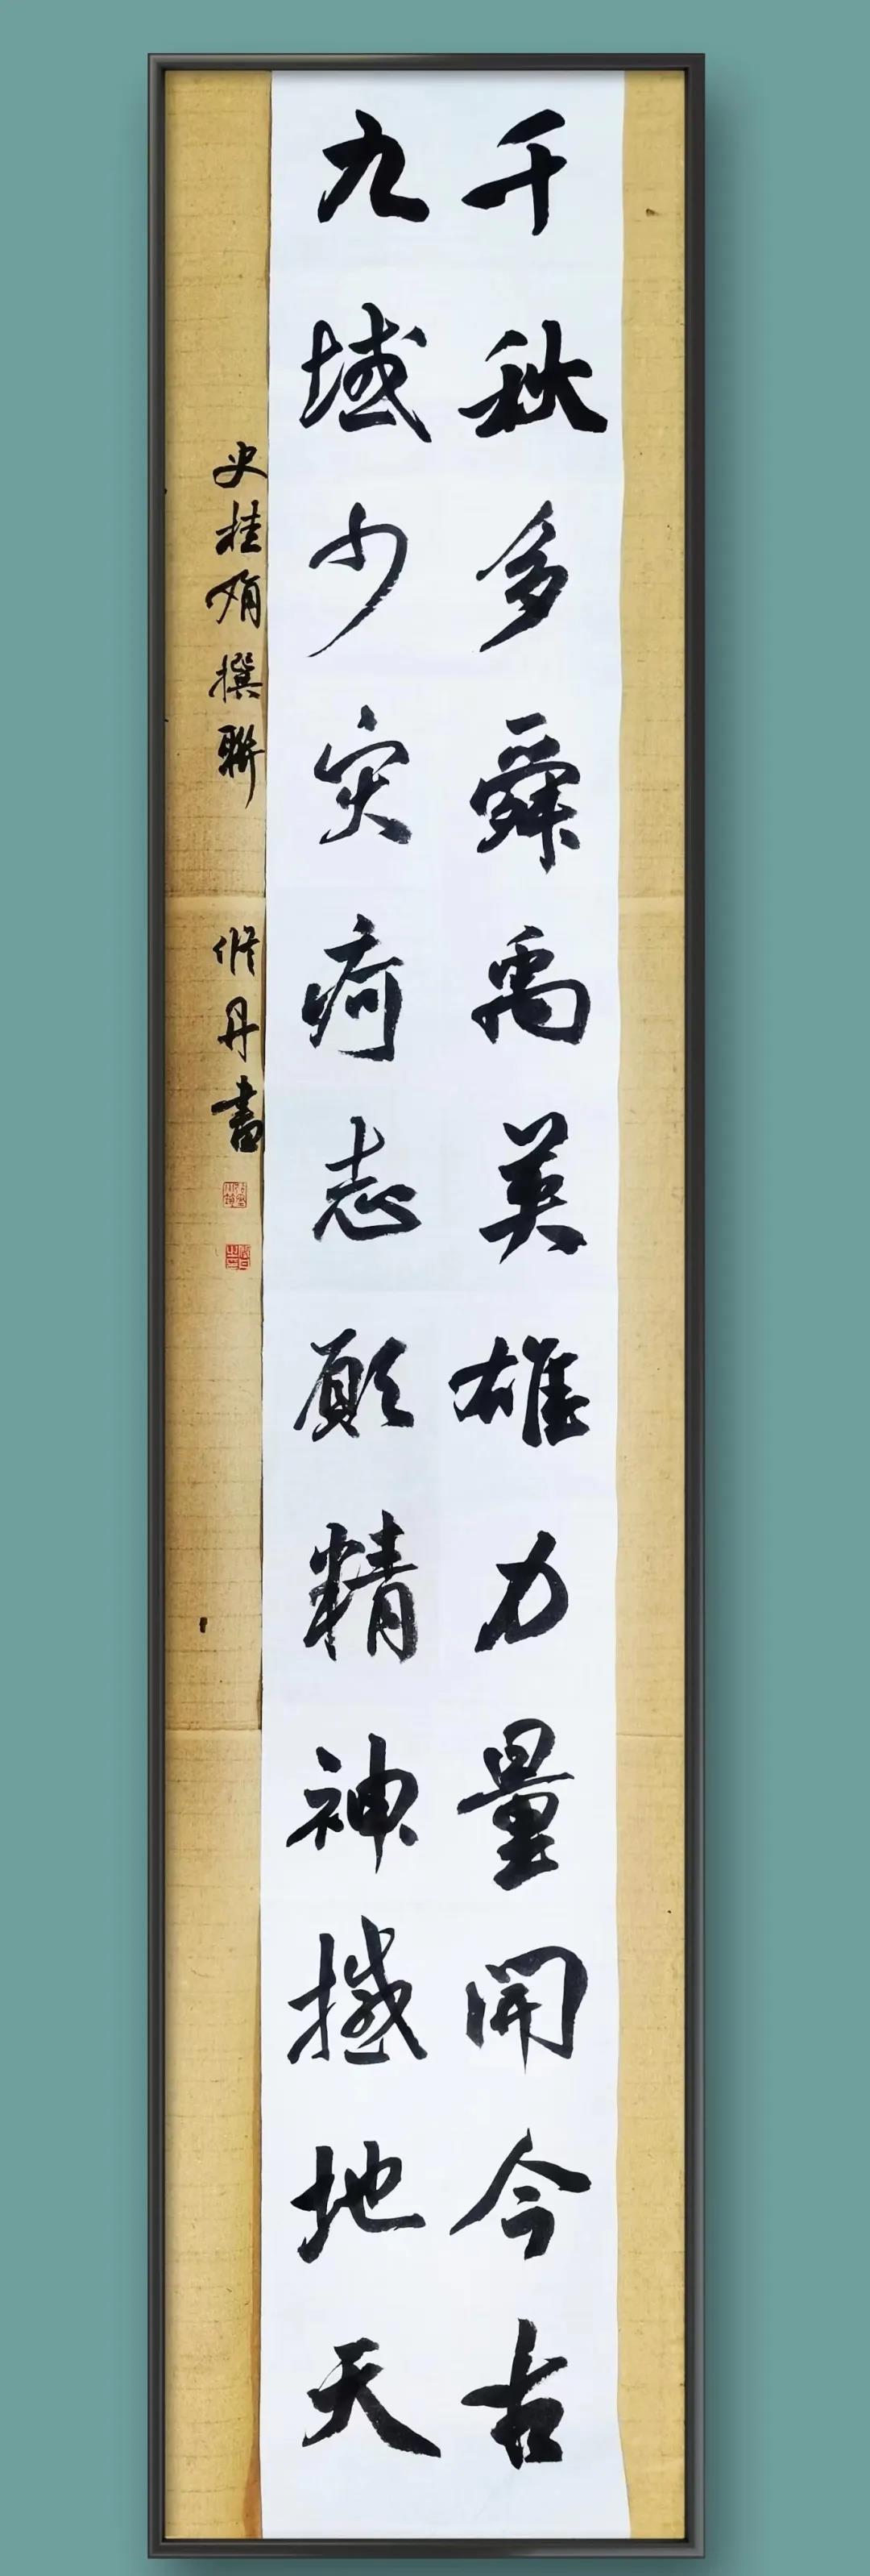 千秋多舜禹英雄力量開今古
九域少灾疴志愿精神撼地天
史桂 撰聯 修丹書